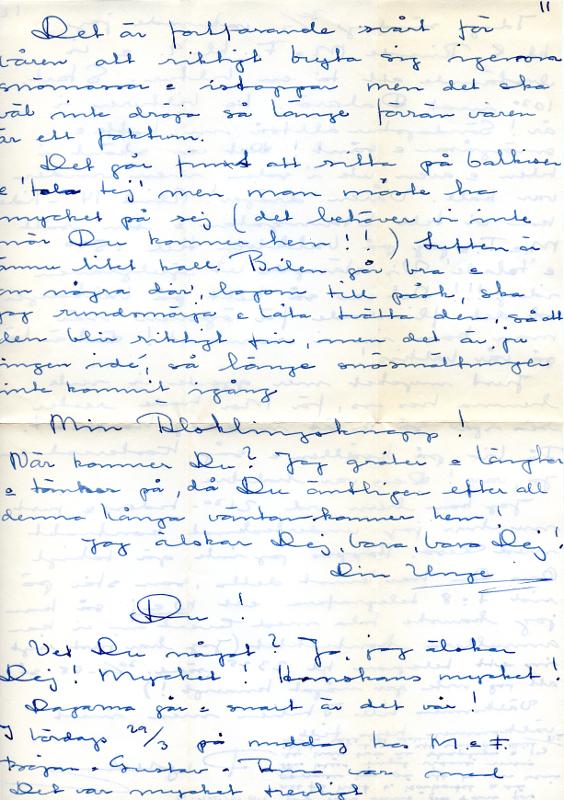 11
Det är fortfarande svårt för
våren att riktigt bryta sig igenom
snömassor o istappar men det ska
väl inte dröja så länge förrän våren
är ett faktum.
Det går fint att sitta på balkisen
o 'tola tej' men man måste ha
mycket på sej (det behöver vi inte
när Du kommer hem!!) Luften är
ännu litet kall. Bilen går bra o
om några dar, lagom till påsk, ska
jag rundsmörja o låta tvätta den, så att
den blir riktigt fin, men det är ju
ingen idé, så länge snösmältningen
inte kommit igång
Min Älsklingsknopp!
När kommer Du? Jag gråter o längtar
o tänker på, då Du äntligen efter all
denna långa väntan kommer hem!
Jag älskar Dej, bara, bara Dej!
Din Unge
Du!
Vet Du något? Jo, jag älskar
Dej! Mycket! Hemskans mycket!
Dagarna går o snart är det vår!
I lördags 29/3 på middag hos M o F.
Gustav var med
Det var mycket trevligt